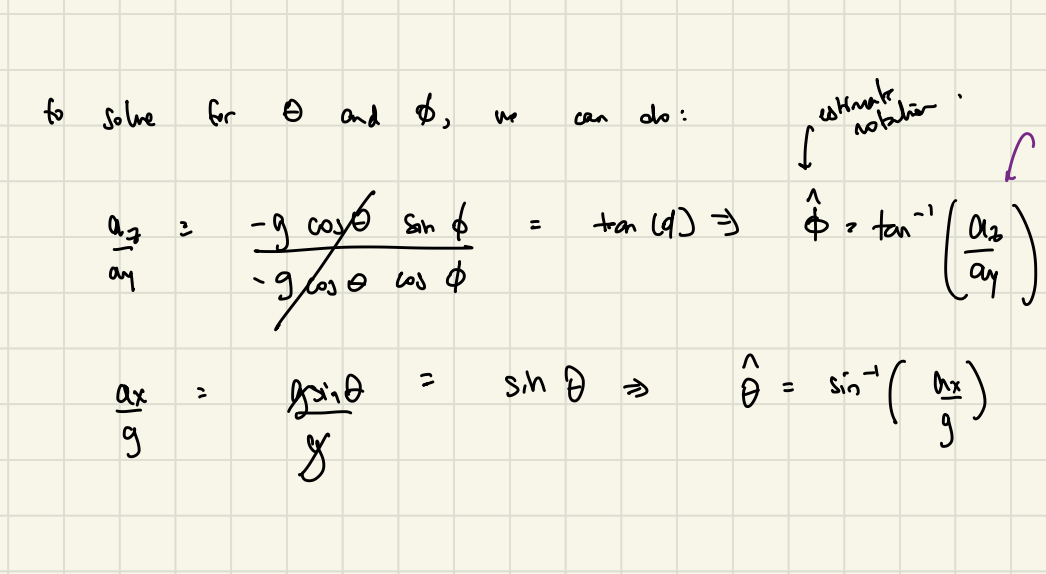 to solve for θ and ϕ, we can do:
estimate
notation
a_z/a_y = (-g cosθ sin ϕ)/(-g cos θ cos ϕ) = tan(ϕ) ⇒ ϕ̂ = tan⁻¹(a_z/a_y)
a_x/g = g sinθ/g = sin θ ⇒ θ̂ = sin⁻¹(a_x/g)